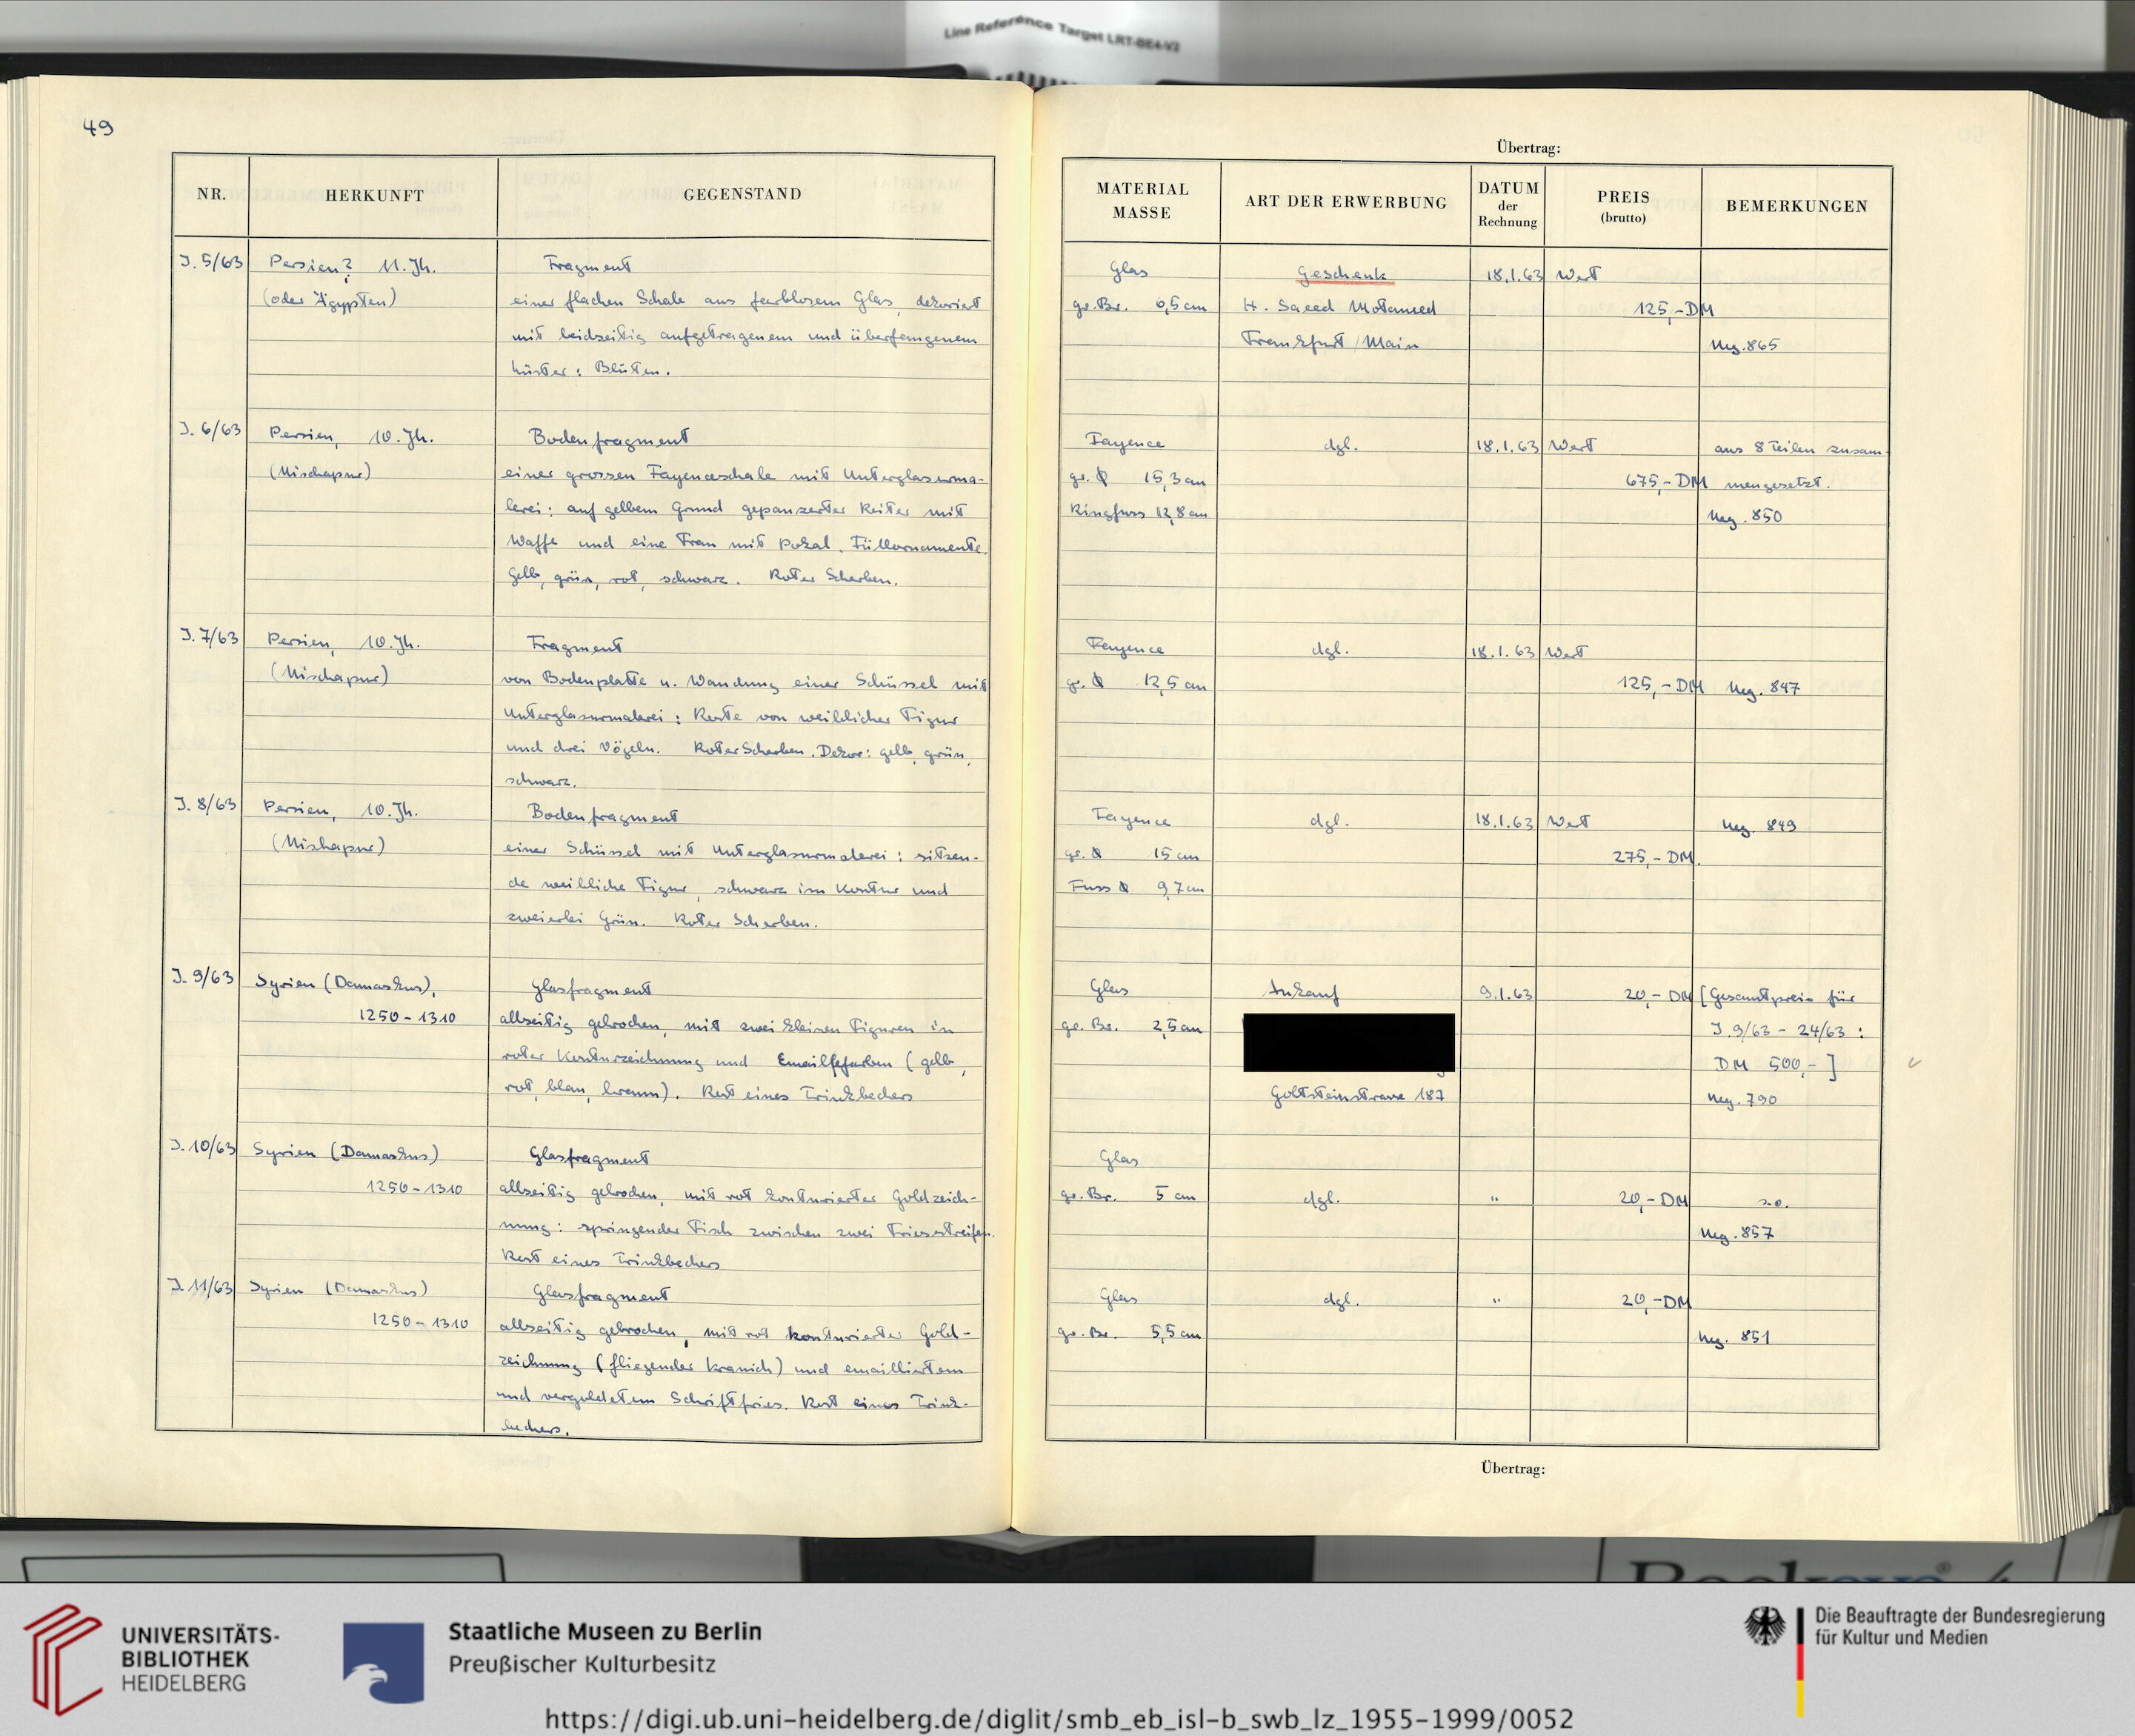 Line Reference Target LRT-BE4-V2
49
Übertrag:
NR. HERKUNFT GEGENSTAND
MATERIAL MASSE ART DER ERWERBUNG DATUM der Rechnung PREIS (brutto) BEMERKUNGEN
J. 5/63 Persien? 11. Jh. Fragment
(oder Ägypten) einer flachen Schale aus farblosem Glas, dekoriert
mit beidseitig aufgetragenem und überfangenem
Lüster: Blüten.
Glas Geschenk 18.1.63 Wert
gr. Br. 6,5 cm H. Saeed Motamed 125,- DM
Frankfurt/Main Neg. 865
J. 6/63 Persien, 10. Jh. Bodenfragment
(Nischapur) einer grossen Fayenceschale mit Unterglasurma-
lerei: auf gelbem Grund gepanzerter Reiter mit
Waffe und eine Frau mit Pokal. Füllornamente.
Gelb, grün, rot, schwarz. Roter Scherben.
Fayence dgl. 18.1.63 Wert aus 8 Teilen zusam-
gr. Ø 15,3 cm 675,- DM mengesetzt.
Ringfuss 12,8 cm Neg. 850
J. 7/63 Persien, 10. Jh. Fragment
(Nischapur) von Bodenplatte u. Wandung einer Schüssel mit
Unterglasurmalerei: Reste von weiblicher Figur
und drei Vögeln. Roter Scherben. Dekor: gelb, grün,
schwarz.
Fayence dgl. 18.1.63 Wert
gr. Ø 12,5 cm 125,- DM Neg. 847
J. 8/63 Persien, 10. Jh. Bodenfragment
(Nishapur) einer Schüssel mit Unterglasurmalerei: sitzen-
de weibliche Figur, schwarz im Kontur und
zweierlei Grün. Roter Scherben.
Fayence dgl. 18.1.63 Wert Neg. 849
gr. Ø 15 cm 275,- DM
Fuss Ø 9,7 cm
J. 9/63 Syrien (Damaskus), Glasfragment
1250-1310 allseitig gebrochen, mit zwei kleinen Figuren in
roter Konturzeichnung und Emailfarben (gelb,
rot, blau, braun). Rest eines Trinkbechers
Glas Ankauf 9.1.63 20,- DM [Gesamtpreis für
gr. Br. 2,5 cm J. 9/63 - 24/63:
DM 500,-]
Goltsteinstrasse 187 Neg. 790
J. 10/63 Syrien (Damaskus) Glasfragment
1250-1310 allseitig gebrochen, mit rot konturierter Goldzeich-
nung: springender Fisch zwischen zwei Friesstreifen.
Rest eines Trinkbechers
Glas
gr. Br. 5 cm dgl. " 20,- DM s.o.
Neg. 857
J. 11/63 Syrien (Damaskus) Glasfragment
1250-1310 allseitig gebrochen, mit rot konturierter Gold-
zeichnung (fliegender Kranich) und emailliertem
und vergoldetem Schriftfries. Rest eines Trink-
bechers.
Glas dgl. " 20,- DM
gr. Br. 5,5 cm Neg. 851
Übertrag:
UNIVERSITÄTS-
BIBLIOTHEK
HEIDELBERG
Staatliche Museen zu Berlin
Preußischer Kulturbesitz
Die Beauftragte der Bundesregierung
für Kultur und Medien
https://digi.ub.uni-heidelberg.de/diglit/smb_eb_isl-b_swb_lz_1955-1999/0052